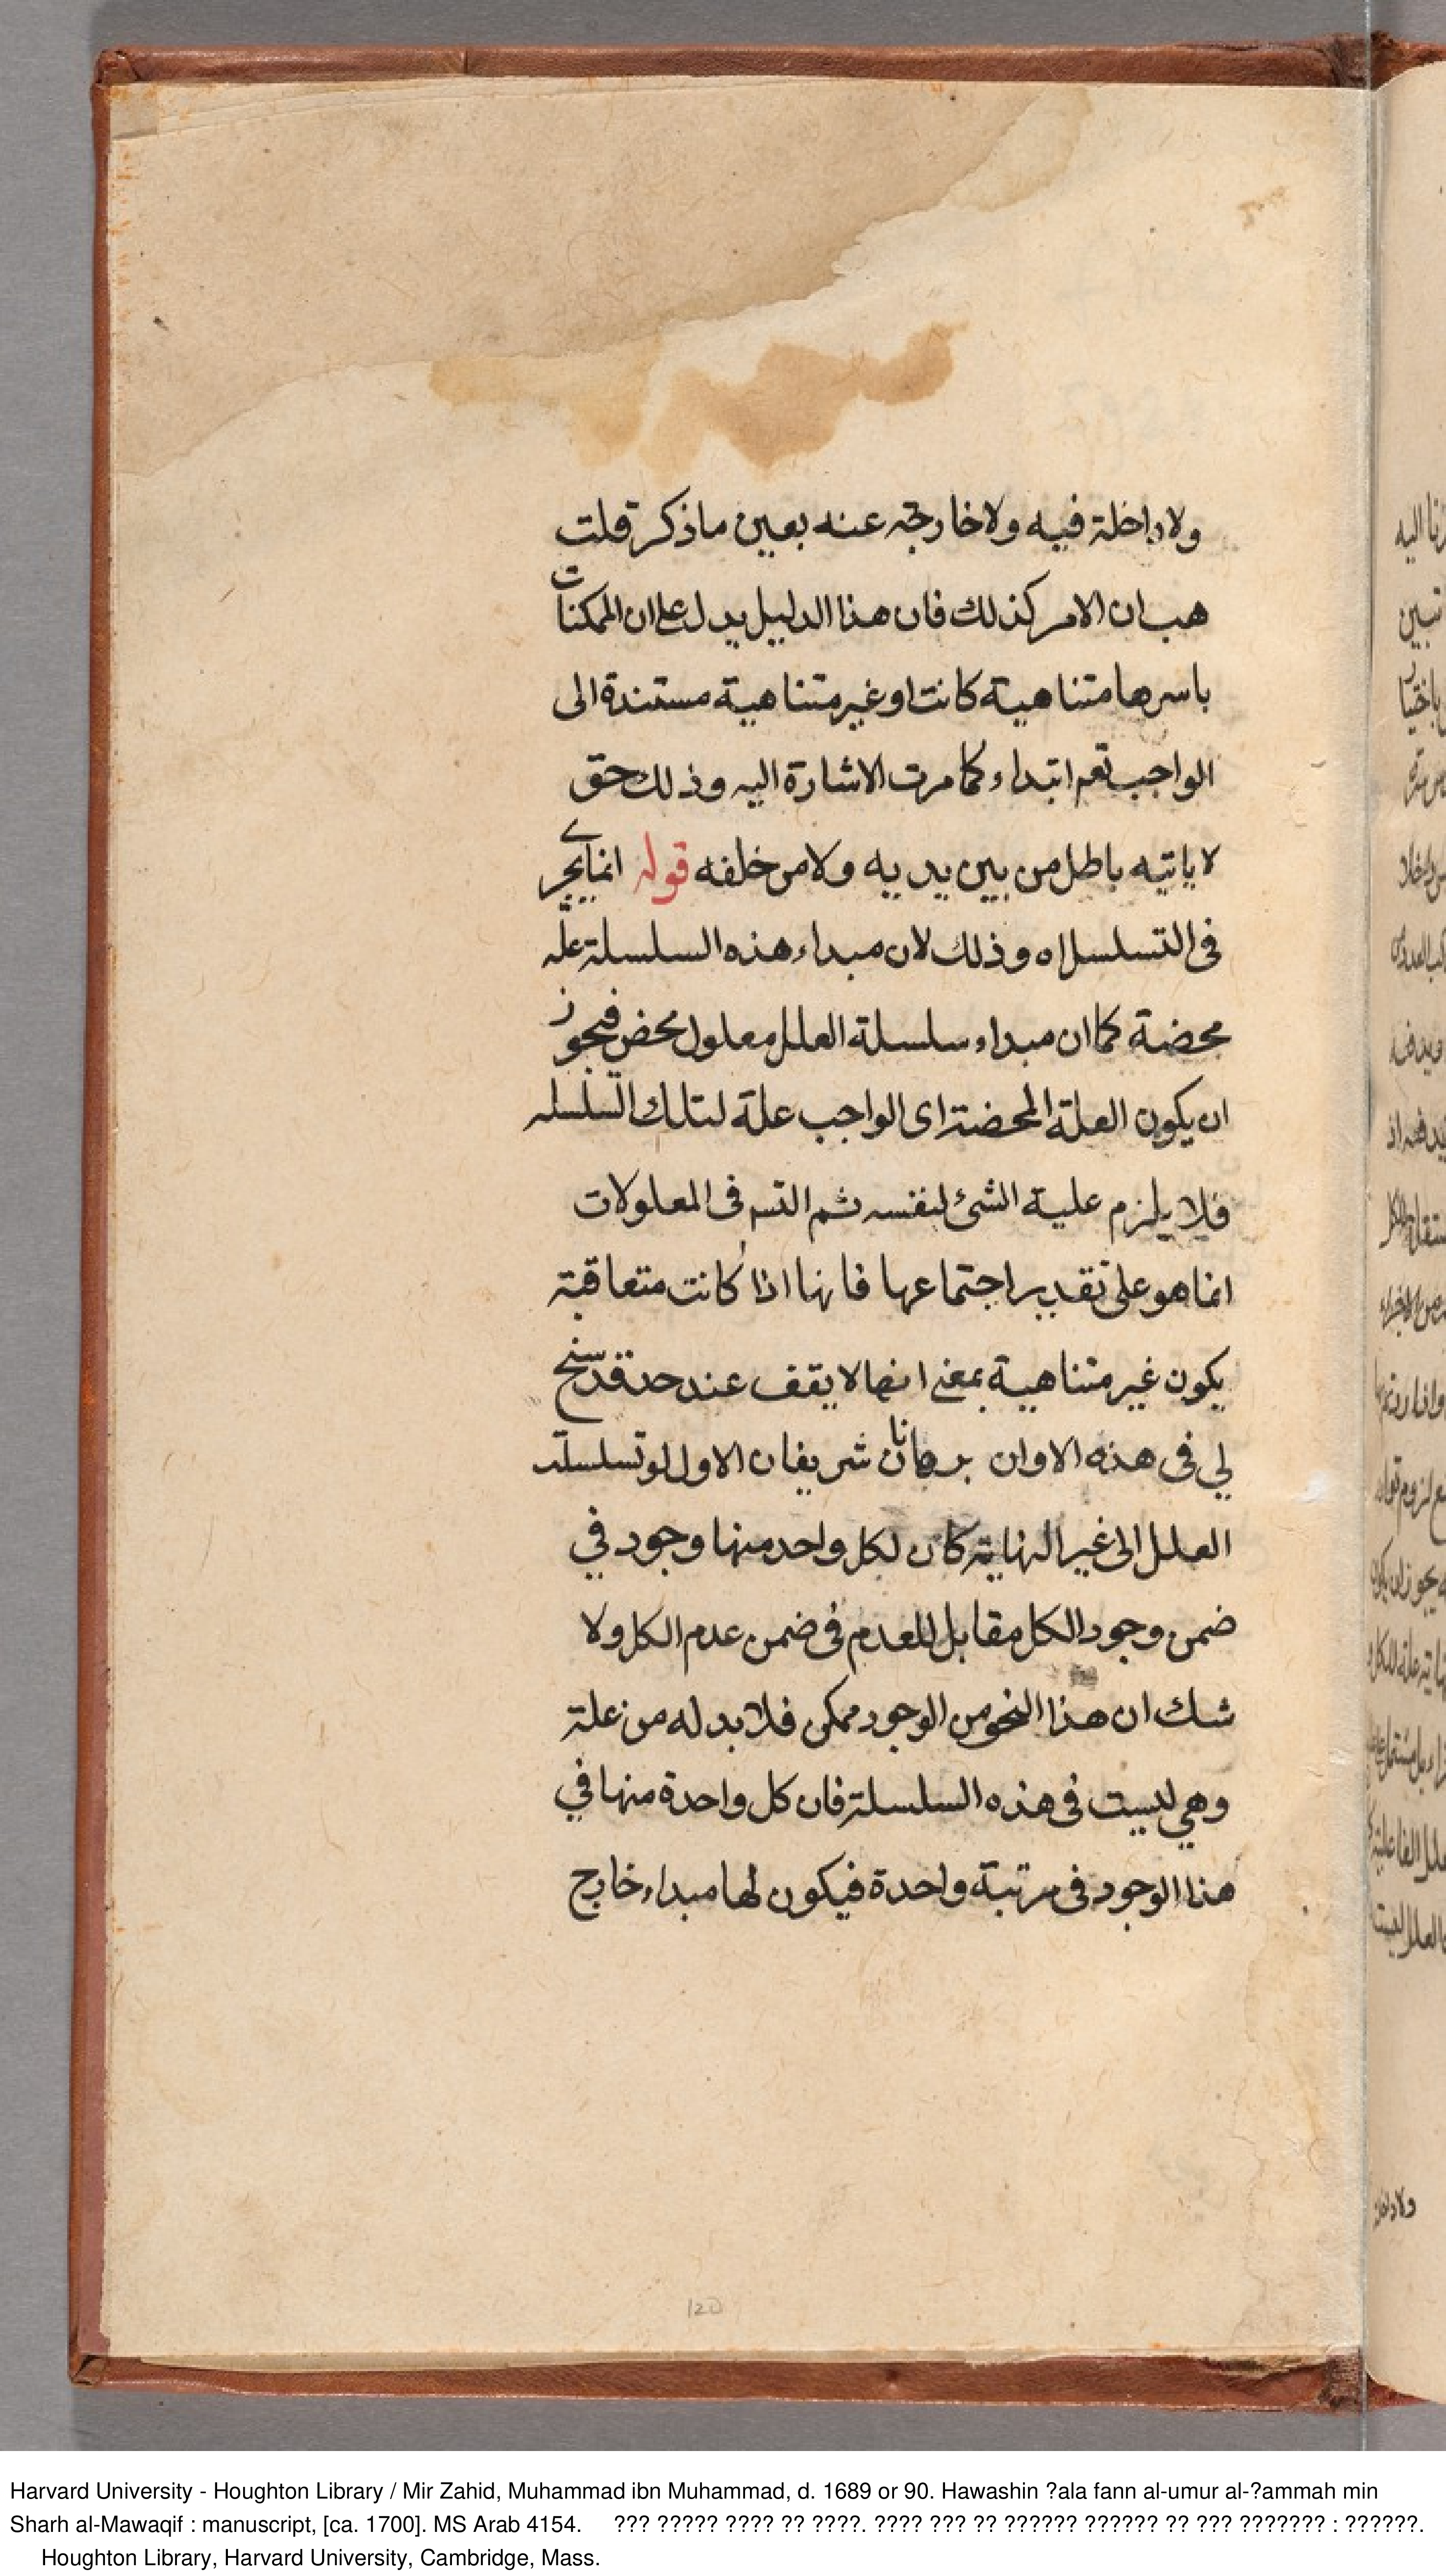 ولا داخلة فيه ولا خارجة عنه بعين ما ذكر قلت
هب ان الامر كذلك فان هذا الدليل يدل على ان الممكنات
باسرها متناهية كانت او غير متناهية مستندة الى
الواجب تعم ابتداء كما مرت الاشارة اليه وذلك حق
لا ياتيه باطل من بين يديه ولا من خلفه قوله انما يجرى
فى التسلسل اه وذلك لان مبداء هذه السلسلة علة
محضة كما ان مبداء سلسلة العلل معلول محض فيجوز
ان يكون العلة المحضة اى الواجب علة لتلك السلسله
فلا يلزم علية الشئ لنفسه ثم التسه فى المعلولات
انما هو على تقدير اجتماعها فانها اذا كانت متعاقبة
يكون غير متناهية بمعنى انها لا يقف عند حد قد سنح
لي فى هذه الاوان برهانان شريفان الاول لو تسلسلت
العلل الى غير النهاية كان لكل واحد منها وجود في
ضمن وجود الكل مقابل للعدم فى ضمن عدم الكل ولا
شك ان هذا النحو من الوجود ممكن فلا بد له من علة
وهي ليست فى هذه السلسلة فان كل واحدة منها في
هذا الوجود فى مرتبة واحدة فيكون لها مبداء خارج
120
ولا داخلة
Harvard University - Houghton Library / Mir Zahid, Muhammad ibn Muhammad, d. 1689 or 90. Hawashin ?ala fann al-umur al-?ammah min
Sharh al-Mawaqif : manuscript, [ca. 1700]. MS Arab 4154. ??? ????? ???? ?? ????. ???? ??? ?? ?????? ?????? ?? ??? ??????? : ??????.
Houghton Library, Harvard University, Cambridge, Mass.